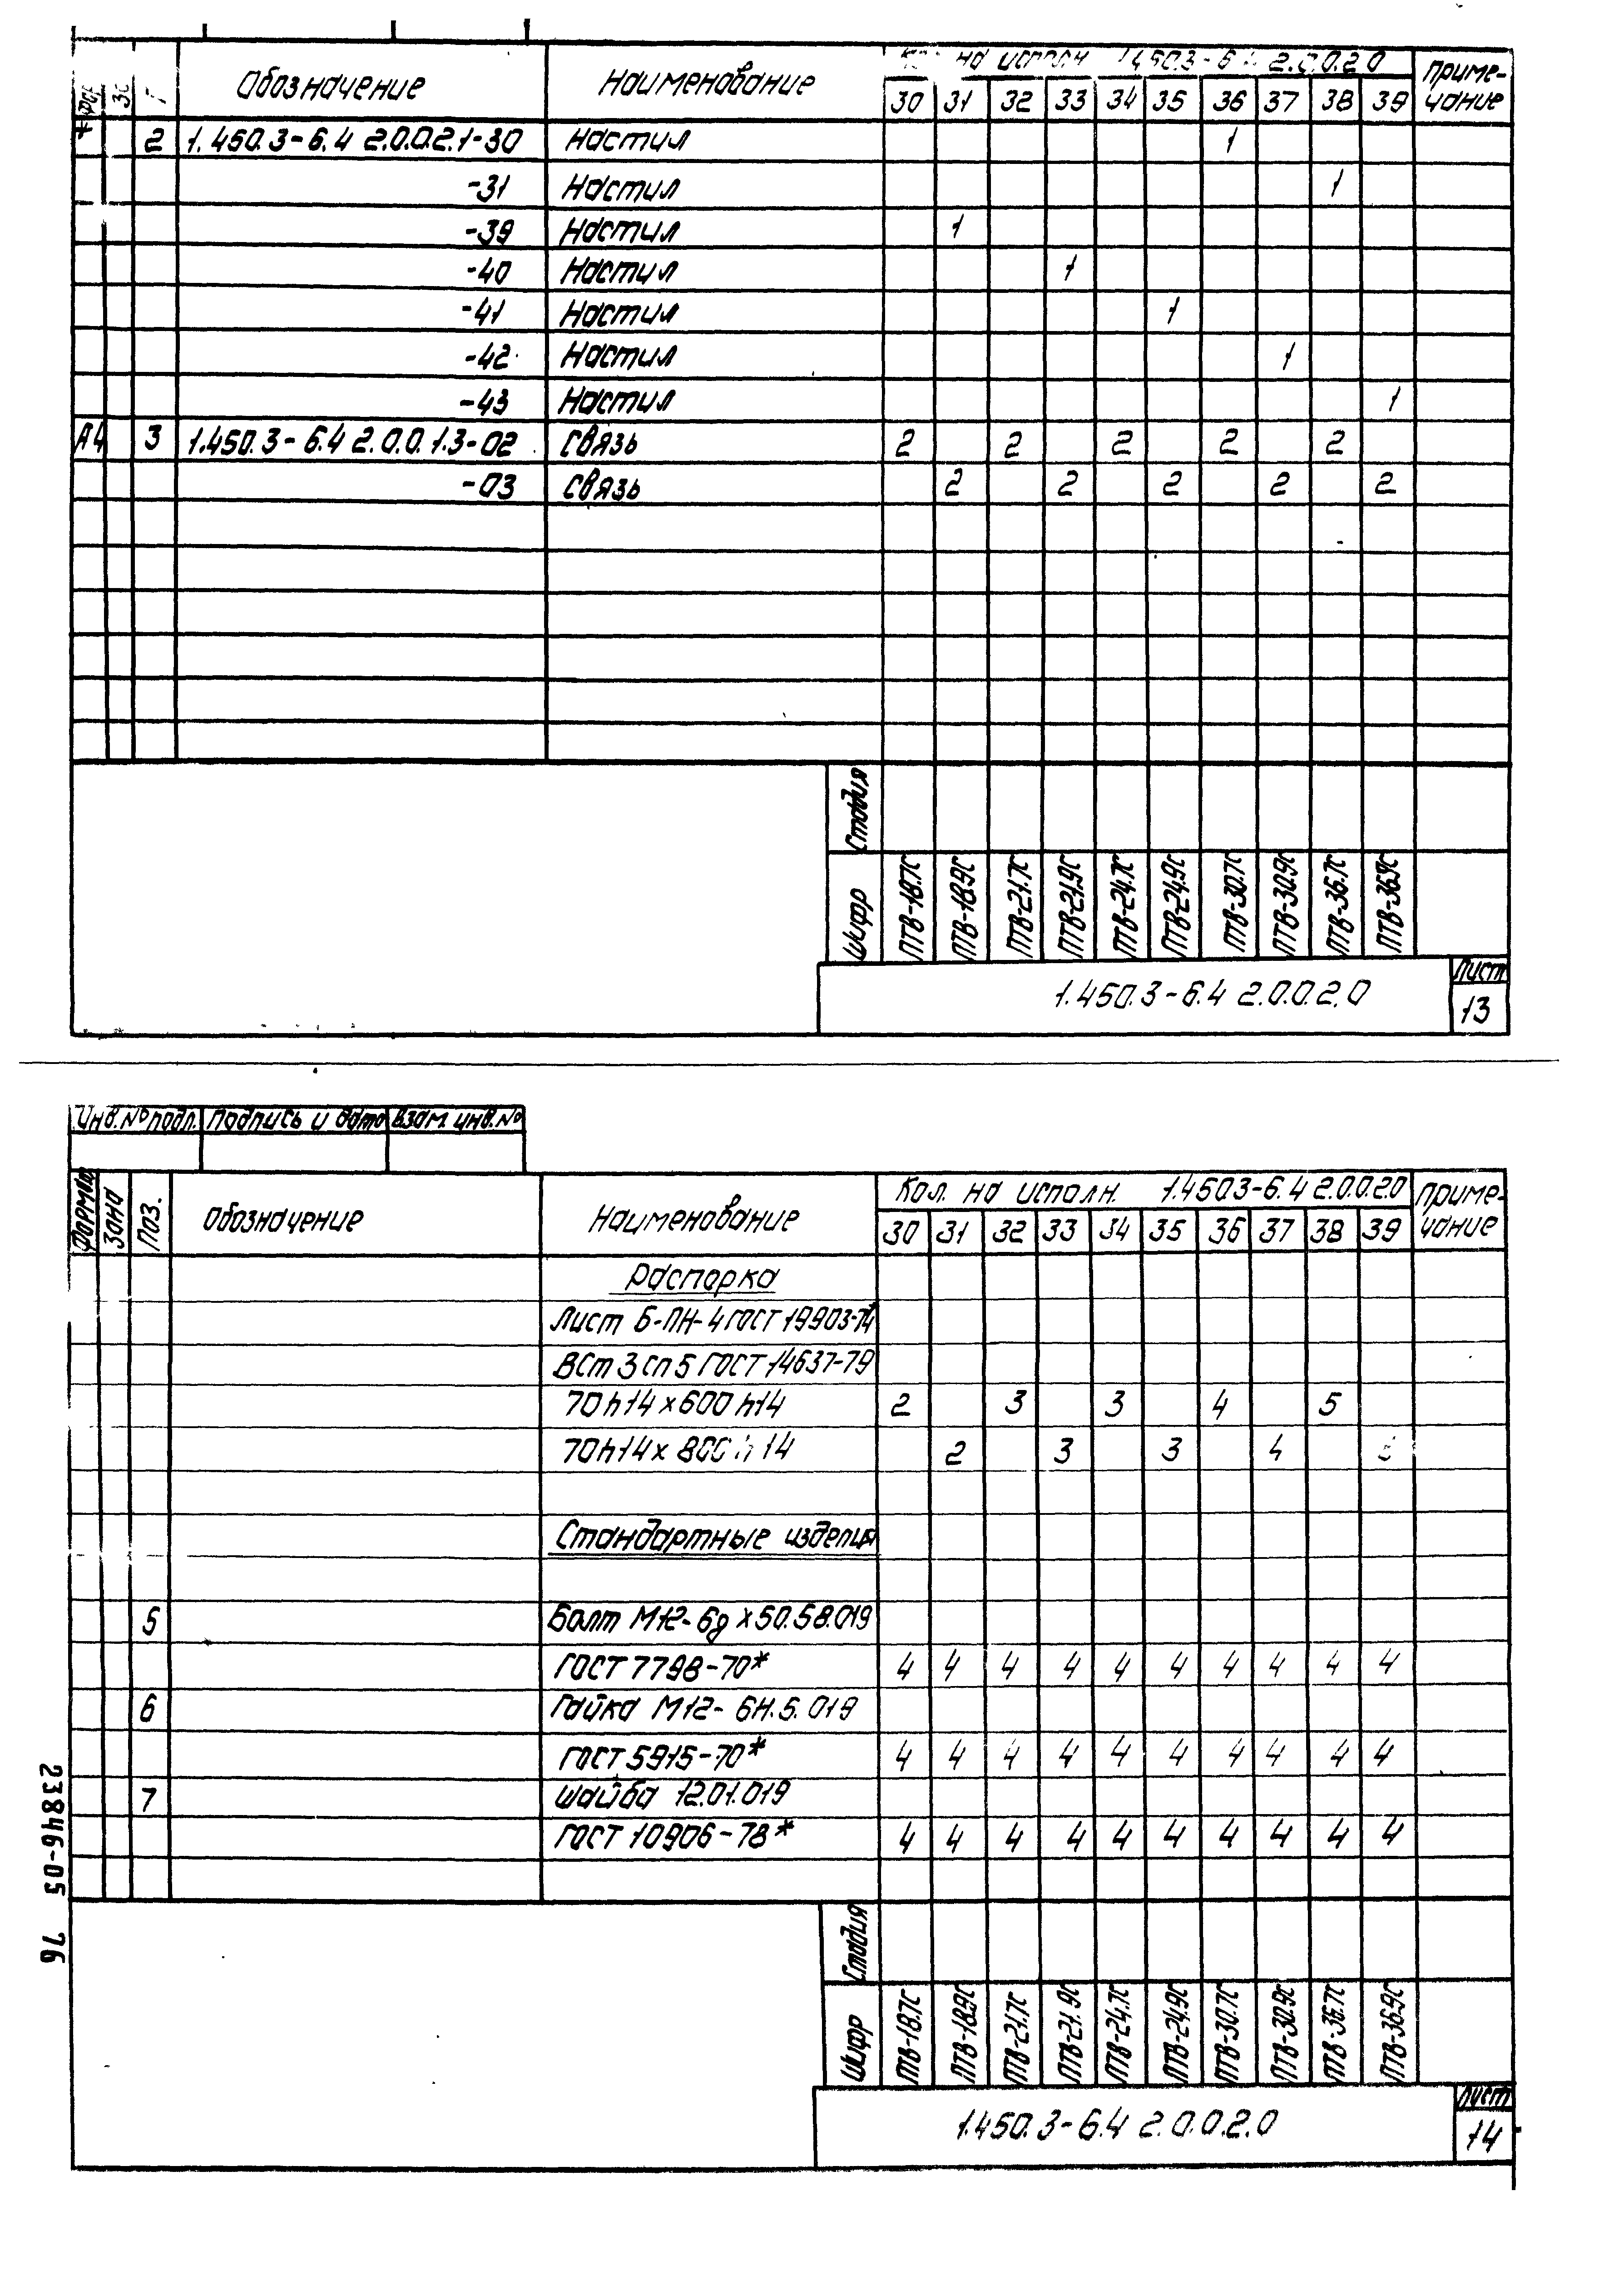 Обозначение Наименование на исполн 1.450.3-6.4 2.0.0.2.0 Приме-
30 31 32 33 34 35 36 37 38 39 чание
2 1.450.3-6.4 2.0.0.2.1-30 Настил 1
-31 Настил 1
-39 Настил 1
-40 Настил 1
-41 Настил 1
-42 Настил 1
-43 Настил 1
А4 3 1.450.3-6.4 2.0.0.1.3-02 Связь 2 2 2 2 2
-03 Связь 2 2 2 2 2
Стадия
Шифр ПТВ-18.7С ПТВ-18.9С ПТВ-21.7С ПТВ-21.9С ПТВ-24.7С ПТВ-24.9С ПТВ-30.7С ПТВ-30.9С ПТВ-36.7С ПТВ-36.9С
1.450.3-6.4 2.0.0.2.0
Лист
13
Инв.№ подл. Подпись и дата Взам. инв.№
Формат Зона Поз. Обозначение Наименование Кол. на исполн. 1.450.3-6.4 2.0.0.2.0 Приме-
30 31 32 33 34 35 36 37 38 39 чание
Распорка
Лист Б-ПН-4 ГОСТ 19903-74
ВСт 3 сп 5 ГОСТ 14637-79
70h14x600h14 2 3 3 4 5
70h14x800h14 2 3 3 4
Стандартные изделия
5 Болт М12-6gx50.58.019
ГОСТ 7798-70* 4 4 4 4 4 4 4 4 4 4
6 Гайка М12-6Н.5.019
ГОСТ 5915-70* 4 4 4 4 4 4 4 4 4 4
7 Шайба 12.01.019
ГОСТ 10906-78* 4 4 4 4 4 4 4 4 4 4
Стадия
Шифр ПТВ-18.7С ПТВ-18.9С ПТВ-21.7С ПТВ-21.9С ПТВ-24.7С ПТВ-24.9С ПТВ-30.7С ПТВ-30.9С ПТВ-36.7С ПТВ-36.9С
1.450.3-6.4 2.0.0.2.0
Лист
14
23846-05 76